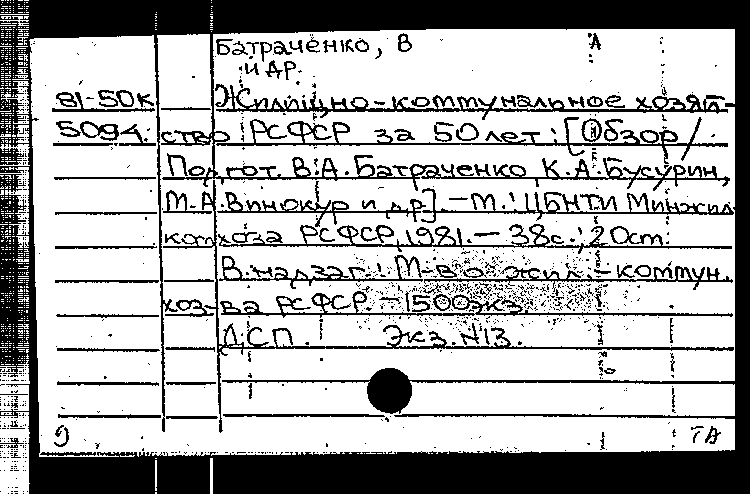 Батраченко, В А
и др.
81-50К Жилищно-коммунальное хозяй-
5094. ство РСФСР за 50 лет: [Обзор /
Подгот. В.А. Батраченко, К.А. Бусурин,
М.А. Винокур и др.]. – М.: ЦБНТИ Минжил-
комхоза РСФСР, 1981. – 38с.; 20см.
В надзаг.: М-во жил.-коммун.
хоз-ва РСФСР. – 1500экз.
ДСП. Экз. N13.
ТА